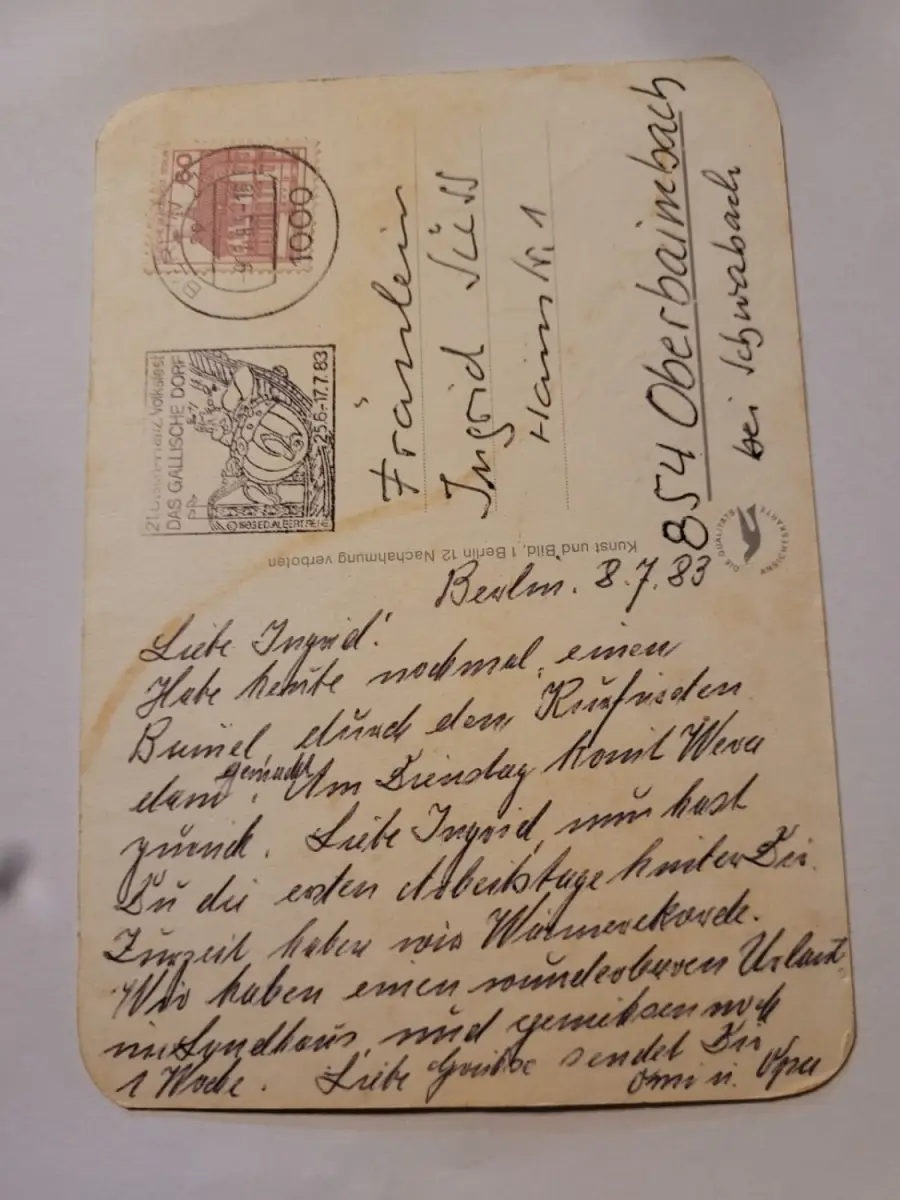 60
1000
21. Deutsch-Franz. Volksfest
DAS GALLISCHE DORF
25.6.-17.7.83
Fräulein
Ingrid Süss
Hainstr. 1
854 Oberbaimbach
bei Schwabach
DIE QUALITÄTS
ANSICHTSKARTE
Kunst und Bild, 1 Berlin 12 Nachahmung verboten
Berlin. 8.7.83
Liebe Ingrid!
Habe heute nochmal einen
Bumel durch den
dam gemacht. Am Dienstag komt Wera
zurück. Liebe Ingrid, nun hast
Du die ersten Arbeitstage hinter Dir.
Zurzeit haben wir Wärmerekorde.
Wir haben einen wunderbaren Urlaub
im Landhaus und geniesen noch
1 Woche. Liebe Grüsse sendet Dir
Omi u. Opa